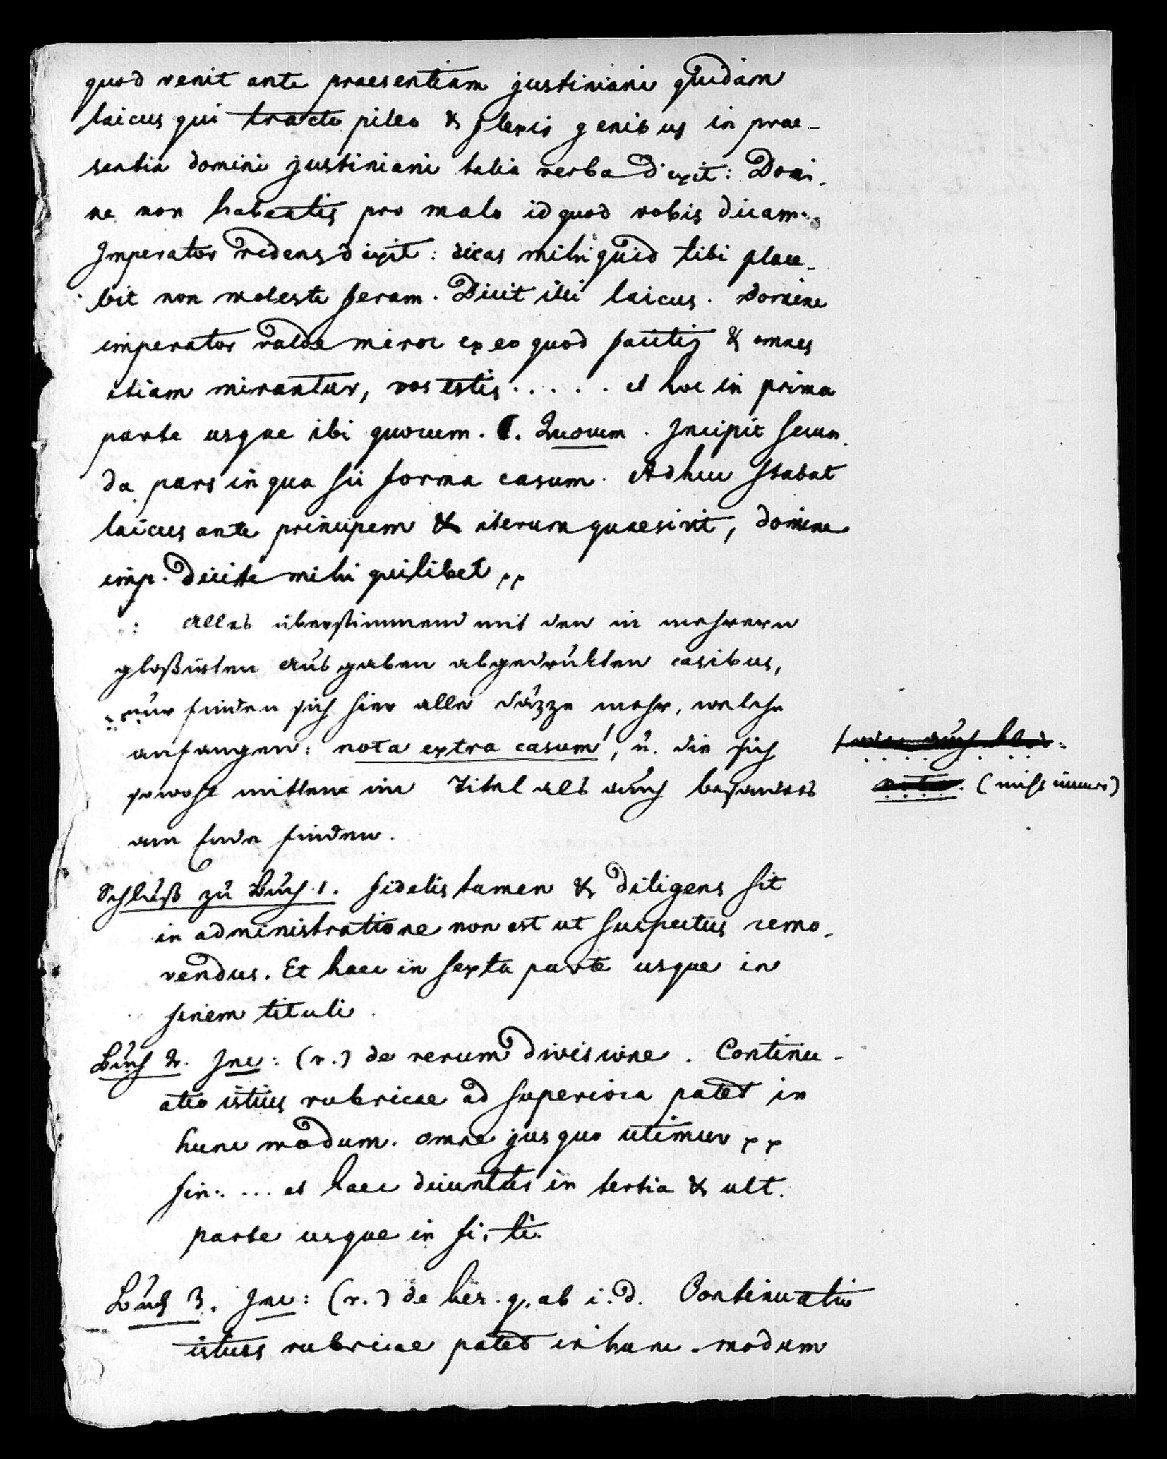 quod venit ante praesentiam justiniani quidam
laicus qui tracto pileo & flexis genibus in prae-
sentia domini justiniani talia verba dixit: Domi-
ne non habeatis pro malo id quod vobis dicam.
Imperator ridens dixit: dicas mihi quid tibi place-
bit non moleste feram. Dicit illi laicus. Domine
imperator valde miror ex eo quod facitis & omnes
etiam mirantur, vos estis . . . . . et hoc in prima
parte usque ibi quorum. C. Quorum. Incipit secun-
da pars in qua sic forma casum. Adhuc stabat
laicus ante principem & iterum quaesivit, domine
imp. dicite mihi quilibet pp
: Alles überstimmend mit den in mehrern
gloßirten Ausgaben abgedrukten casibus,
nur finden sich hier alle Säzze mehr, welche
anfangen: nota extra casum, u. die sich
sowohl mitten im Titel als auch besonders
am Ende finden.
oder auch blos
nota. (nicht immer)
Schluß zu Buch 1. fidelis tamen & diligens sit
in administratione non est ut suspectus remo-
vendus. Et haec in sexta parte usque in
finem tituli.
Buch 2. Inc: (r.) de rerum divisione. Continu-
atio istius rubricae ad superiora patet in
hunc modum. omne jus quo utimur pp
fin: ... et haec dicuntur in tertia & ult.
parte usque in fi. ti.
Buch 3. Inc: (r.) de her. q. ab i. d. Continuatio
istius rubricae patet in hunc modum